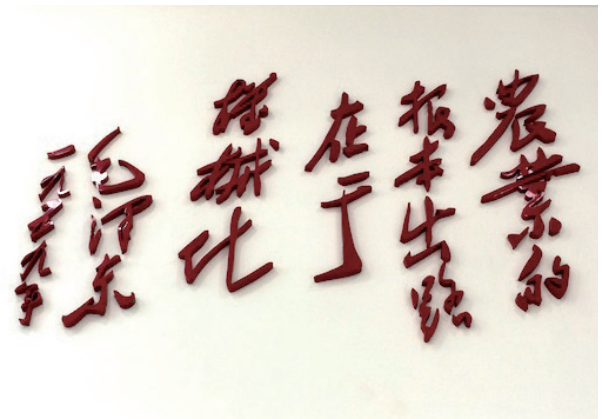 農業的
根本出路
在于
機械化
毛泽东
一九五九年